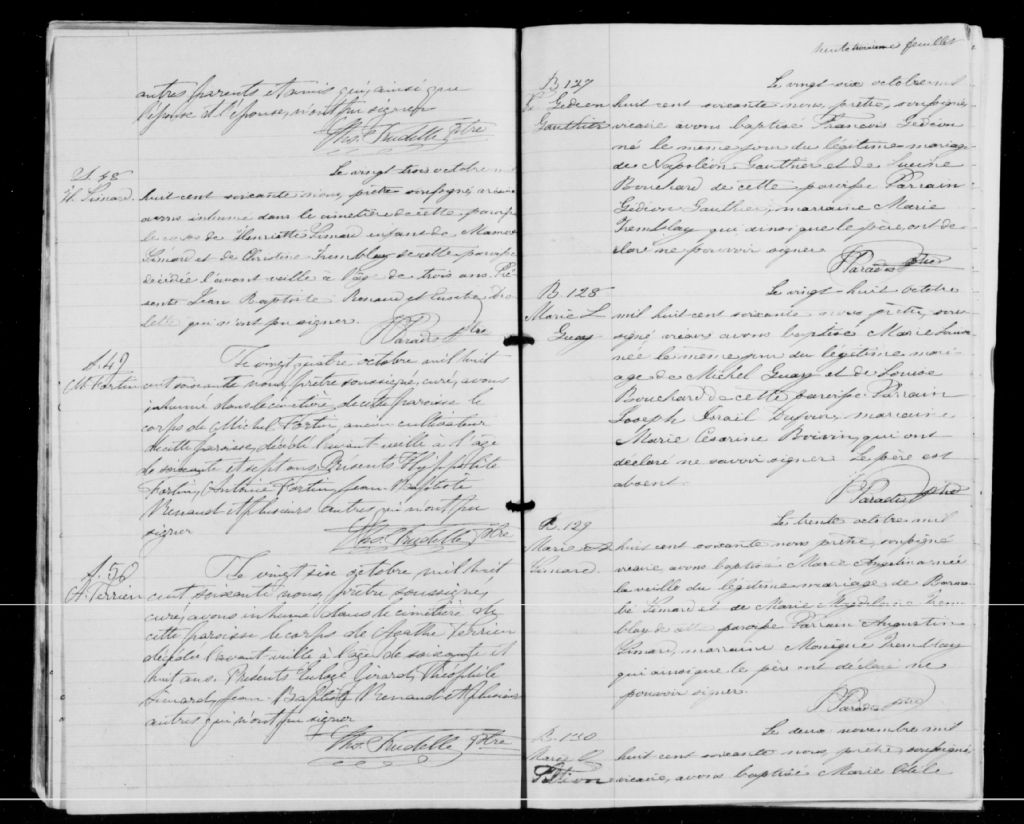 autres parents et amis qui, ainsi que
l'époux et l'épouse, n'ont pu signer
Ths. Trudelle Ptre
S. 48
H. Simard
Le vingt trois octobre mil
huit cent soixante nous, prêtre soussigné, vicaire
avons inhumé dans le cimetière de cette paroisse
le corps de Henriette Simard enfant de Mamer
Simard et de Christine Tremblay de cette paroisse
décédée l'avant veille à l'âge de trois ans. Pré-
sents Jean Baptiste Renaud et Eusèbe
qui n'ont pu signer.
Paradis Ptre
S. 49
M. Fortin
Le vingt quatre octobre mil huit
cent soixante nous, prêtre soussigné, curé, avons
inhumé dans le cimetière de cette paroisse le
corps de Michel Fortin, ancien cultivateur
de cette paroisse, décédé l'avant veille à l'age
de soixante et sept ans. Présents Hyppolite
Fortin, Antoine Fortin, Jean-Baptiste
Renaud et plusieurs autres qui n'ont pu
signer
Ths. Trudelle Ptre
S. 50
A. Terrien
Le vingt six octobre mil huit
cent soixante nous, prêtre soussigné,
curé, avons inhumé dans le cimetière de
cette paroisse le corps de Agathe Terrien
décédée l'avant veille à l'age de soixante et
huit ans. Présents Euloge Girard, Théophile
Simard, Jean-Baptiste Renaud et plusieurs
autres qui n'ont pu signer
Ths. Trudelle Ptre
feuillet
B 127
F. Gédéon
Gauthier
Le vingt six octobre mil
huit cent soixante nous, prêtre, soussigné,
vicaire avons baptisé François Gédéon
né le même jour du légitime mariage
de Napoléon Gauthier et de
Bouchard de cette paroisse Parrain
Gédéon Gauthier, marraine Marie
Tremblay qui ainsi que le père, ont dé-
claré ne pouvoir signer
Paradis Ptre
B. 128
Marie L
Guay
Le vingt-huit octobre
mil huit cent soixante nous, prêtre, sous-
signé vicaire avons baptisé Marie
née le même jour du légitime mari-
age de Michel Guay et de Louise
Bouchard de cette paroisse Parrain
Joseph Israil Dufour, marraine
Marie Césarine Boivin, qui ont
déclaré ne savoir signer Le père est
absent.
Paradis Ptre
B. 129
Marie A
Simard
Le trente octobre mil
huit cent soixante nous prêtre, soussigné
vicaire avons baptisé Marie Angelina née
la veille du légitime mariage de Barna-
bé Simard et de Marie Magdelaine Trem-
blay de cette paroisse Parrain Augustin
Simard, marraine Monique Tremblay
qui ainsi que le père ont déclaré ne
pouvoir signer.
Paradis Ptre
B. 130
Marie O
Le deux novembre mil
huit cent soixante nous, prêtre, soussigné
vicaire, avons baptisé Marie Odile